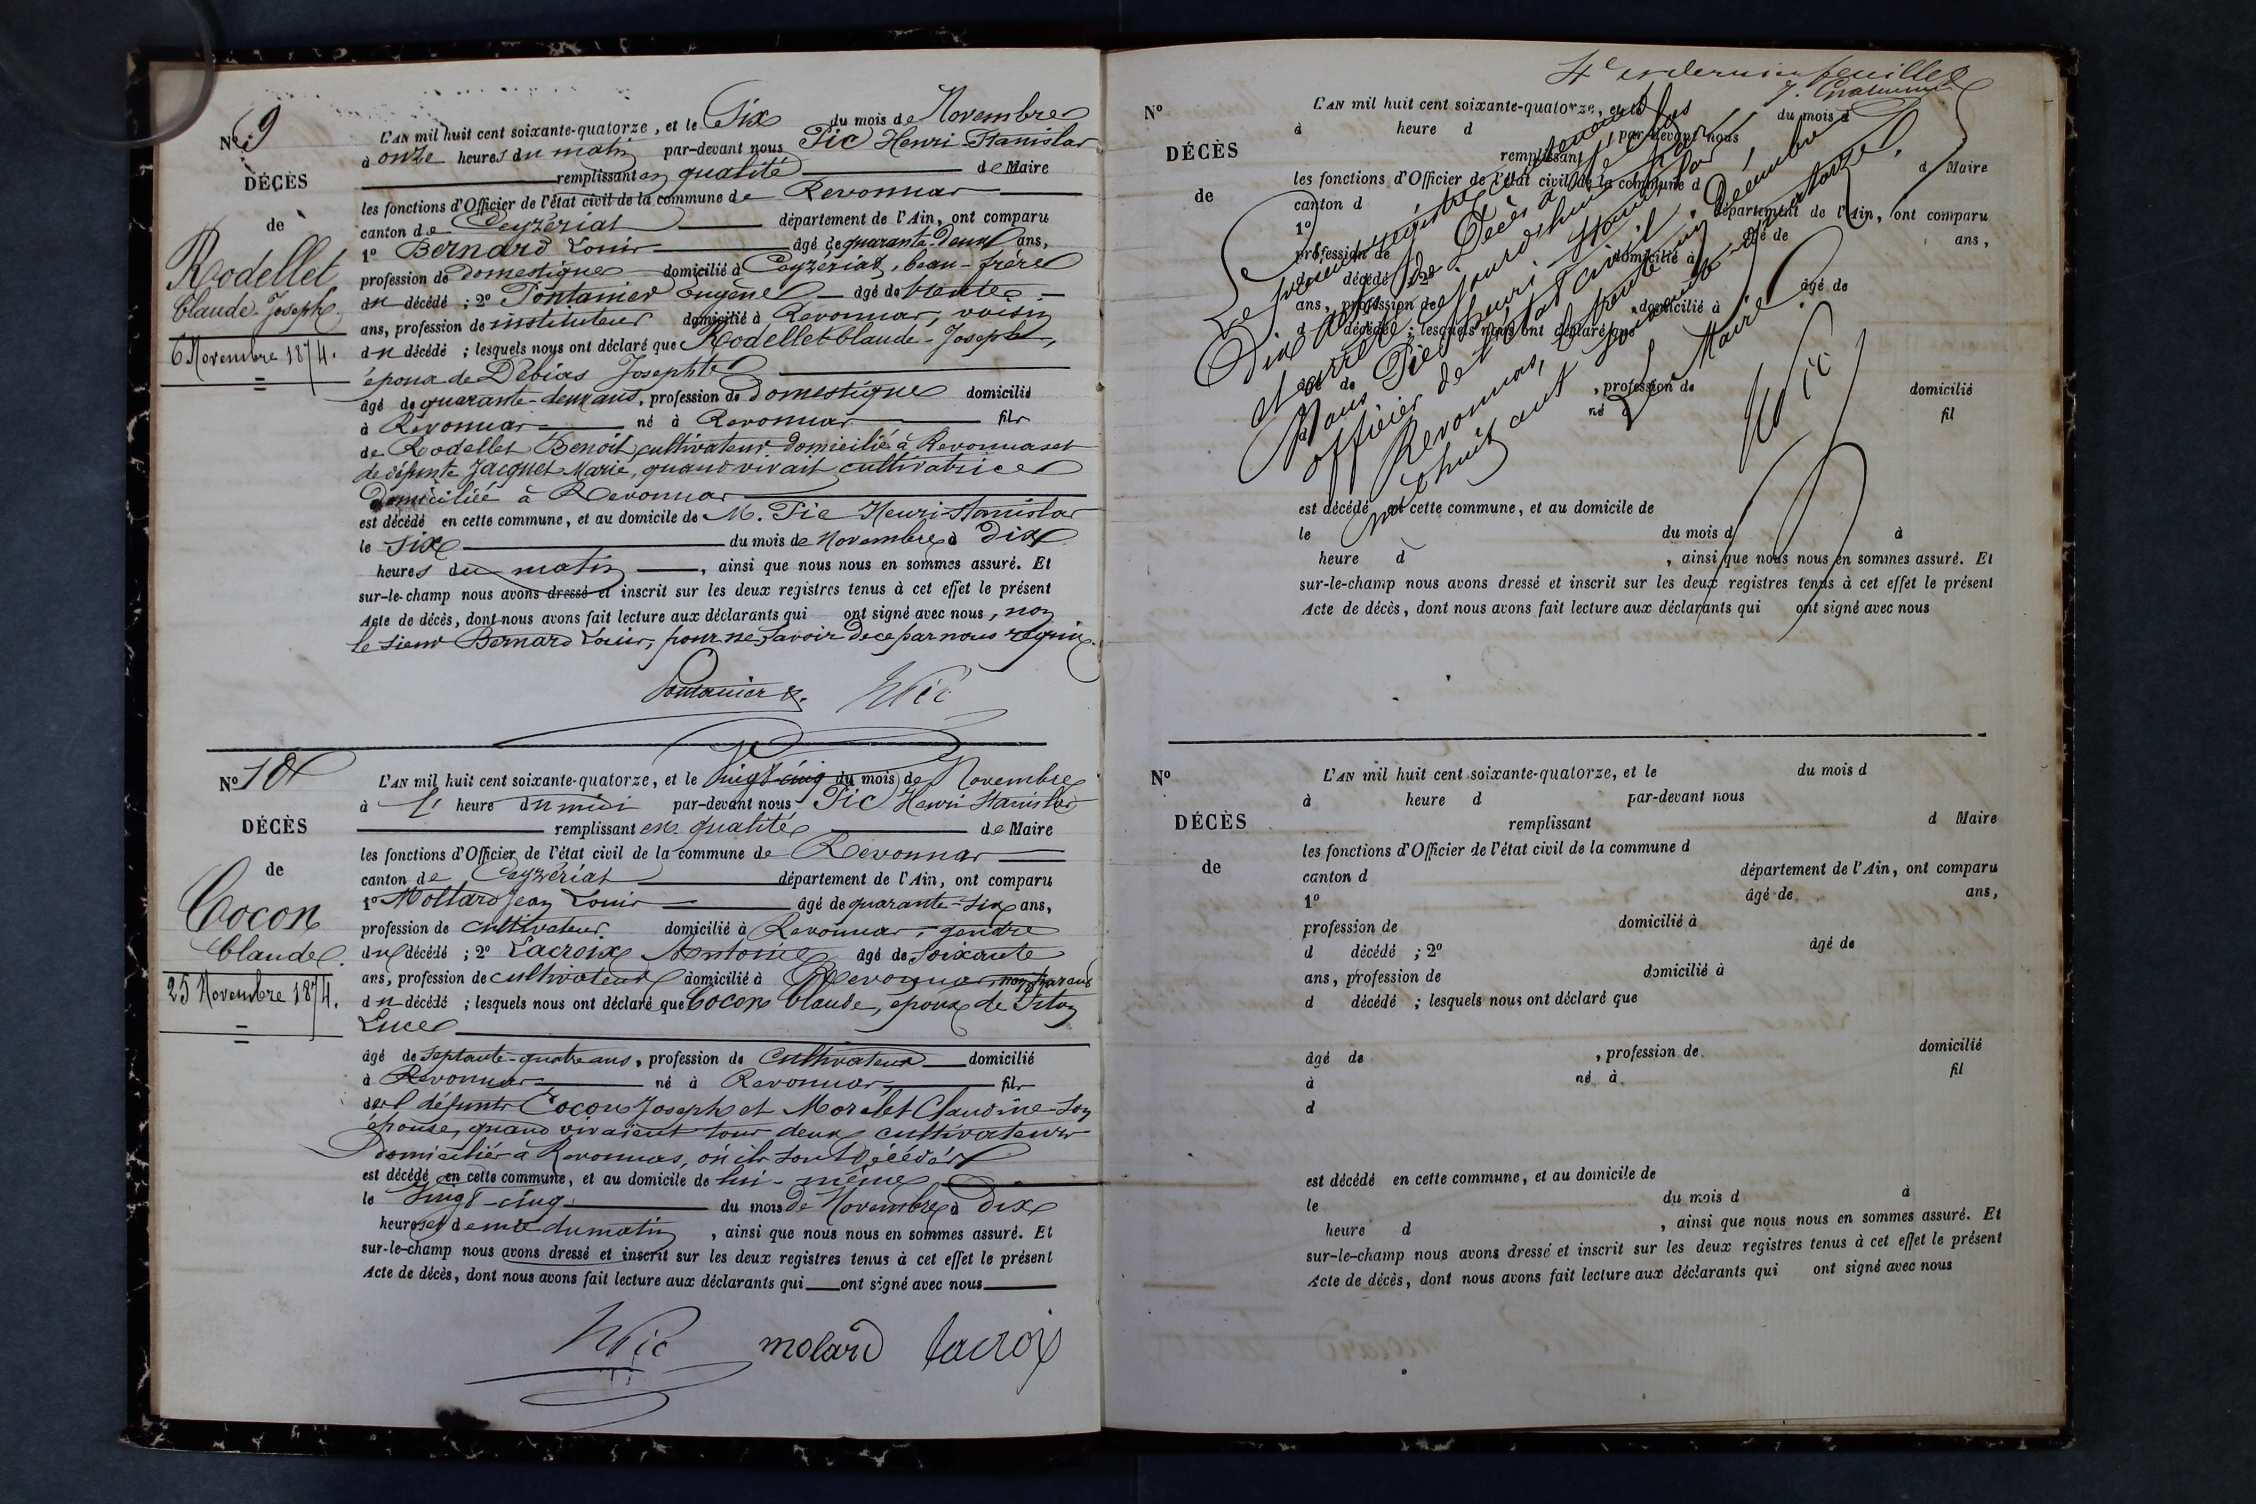 No 9
DÉCÈS
de
Rodellet
Claude-Joseph.
6 Novembre 1874.
L'AN mil huit cent soixante-quatorze, et le Six du mois de Novembre
à onze heures du matin par-devant nous Pic Henri Stanislas
remplissant en qualité de Maire
les fonctions d'Officier de l'état civil de la commune de Revonnas
canton de Ceyzériat département de l'Ain, ont comparu
1º Bernard Louis âgé de quarante-deux ans,
profession de domestique domicilié à Ceyzériat, beau-frère
du décédé ; 2º Pontanier Eugène âgé de trente
ans, profession de instituteur domicilié à Revonnas, voisin
du décédé ; lesquels nous ont déclaré que Rodellet Claude-Joseph,
époux de Débias Josephte
âgé de quarante-deux ans, profession de domestique domicilié
à Revonnas né à Revonnas fils
de Rodellet Benoit cultivateur domicilié à Revonnas et
de défunte Jacquet Marie, quand vivait cultivatrice
domiciliée à Revonnas
est décédé en cette commune, et au domicile de M. Pic Henri-Stanislas
le six du mois de Novembre à dix
heures du matin, ainsi que nous nous en sommes assuré. Et
sur-le-champ nous avons dressé et inscrit sur les deux registres tenus à cet effet le présent
Acte de décès, dont nous avons fait lecture aux déclarants qui ont signé avec nous, non
le sieur Bernard Louis, pour ne savoir de ce par nous requis.
Pontanier E. H Pic
No 10
DÉCÈS
de
Cocon
Claude.
25 Novembre 1874.
L'AN mil huit cent soixante-quatorze, et le Vingt-cinq du mois de Novembre
à heure du midi par-devant nous Pic Henri Stanislas
remplissant en qualité de Maire
les fonctions d'Officier de l'état civil de la commune de Revonnas
canton de Ceyzériat département de l'Ain, ont comparu
1º Mollard Jean Louis âgé de quarante-six ans,
profession de cultivateur domicilié à Revonnas, gendre
du décédé ; 2º Lacroix Antoine âgé de soixante
ans, profession de cultivateur domicilié à Revonnas, non parent
du décédé ; lesquels nous ont déclaré que Cocon Claude, époux de Piton
Luce
âgé de septante-quatre ans, profession de Cultivateur domicilié
à Revonnas né à Revonnas fils
des défunts Cocon Joseph et Morelet Claudine son
épouse, quand vivaient tous deux cultivateurs
domiciliés à Revonnas, où ils sont décédés
est décédé en cette commune, et au domicile de lui-même
le Vingt-cinq du mois de Novembre à dix
heures et demie du matin, ainsi que nous nous en sommes assuré. Et
sur-le-champ nous avons dressé et inscrit sur les deux registres tenus à cet effet le présent
Acte de décès, dont nous avons fait lecture aux déclarants qui ont signé avec nous
H Pic molard lacroix
4e et dernier feuillet
No
DÉCÈS
de
L'AN mil huit cent soixante-quatorze, et le du mois d
à heure d par-devant nous
remplissant d Maire
les fonctions d'Officier de l'état civil de la commune d
canton d département de l'Ain, ont comparu
1º âgé de ans,
profession de domicilié à
d décédé ; 2º âgé de
ans, profession de domicilié à
d décédé ; lesquels nous ont déclaré que
âgé de , profession de domicilié
né à fil
est décédé en cette commune, et au domicile de
le du mois d à
heure d , ainsi que nous nous en sommes assuré. Et
sur-le-champ nous avons dressé et inscrit sur les deux registres tenus à cet effet le présent
Acte de décès, dont nous avons fait lecture aux déclarants qui ont signé avec nous
Le présent registre contenant
Dix actes de Décès a été clos
et arrêté cejourd'hui par
Nous Pic Henri-Stanislas,
officier de l'état civil,
Revonnas, le trente un Décembre
mil huit cent soixante-quatorze.
Le Maire
H Pic
No
DÉCÈS
de
L'AN mil huit cent soixante-quatorze, et le du mois d
à heure d par-devant nous
remplissant d Maire
les fonctions d'Officier de l'état civil de la commune d
canton d département de l'Ain, ont comparu
1º âgé de ans,
profession de domicilié à
d décédé ; 2º âgé de
ans, profession de domicilié à
d décédé ; lesquels nous ont déclaré que
âgé de , profession de domicilié
à né à fil
d
est décédé en cette commune, et au domicile de
le du mois d à
heure d , ainsi que nous nous en sommes assuré. Et
sur-le-champ nous avons dressé et inscrit sur les deux registres tenus à cet effet le présent
Acte de décès, dont nous avons fait lecture aux déclarants qui ont signé avec nous